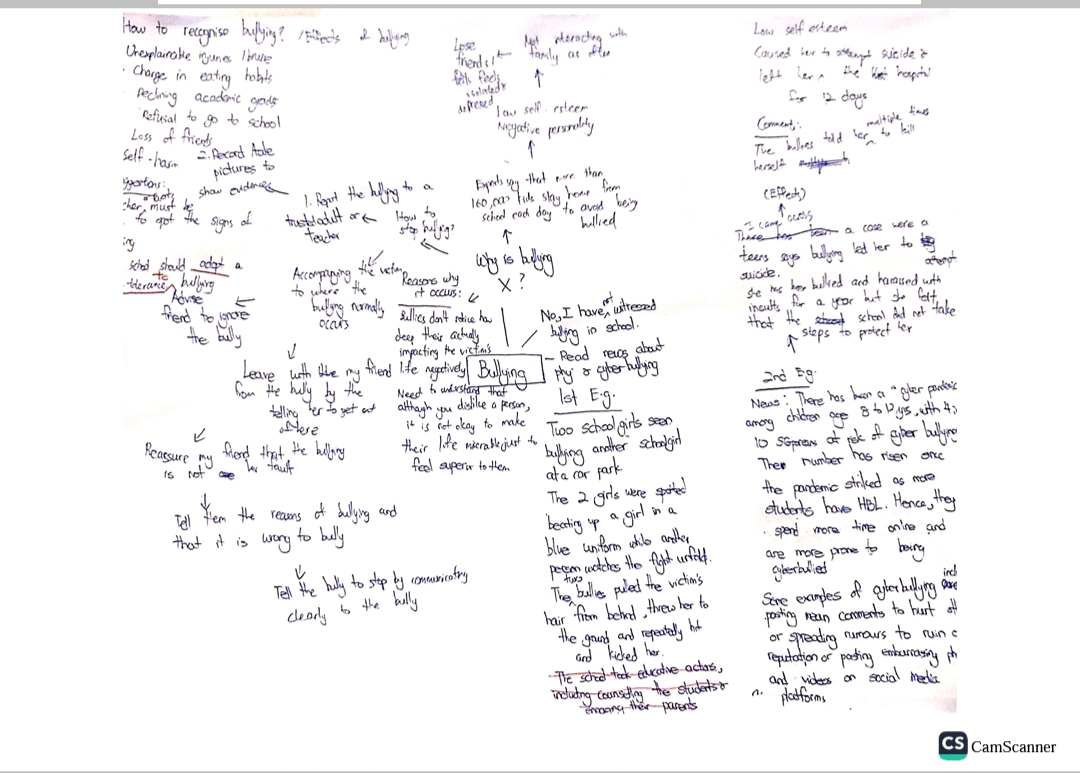 How to recognise bullying? / Effects of bullying
Unexplainable injuries / bruise
Change in eating habits
Declining academic grade
Refusal to go to school
Loss of friends
Self-harm
2. Record / take
pictures to
show evidence
must be
to spot the signs of
ing
School should adopt a
tolerance bullying
Advise
friend to ignore
the bully
1. Report the bullying to a
trusted adult or
teacher
How to
stop bullying?
Accompanying the victim
to where the
bullying normally
occurs
Leave with the my friend
from the bully by the
telling her to get out
of there
Reassure my friend that the bullying
is not her fault
Tell them the reasons of bullying and
that it is wrong to bully
Tell the bully to stop by communicating
clearly to the bully
Reasons why
it occurs:
Bullies don't notice how
deep their actually
impacting the victim's
life negatively
Need to understand that
although you dislike a person,
it is not okay to make
their life miserable just to
feel superior to them
Lose
friends /
feels
isolated &
depressed
Not interacting with
family as often
Low self-esteem
Negative personality
Experts say that more than
160,000 kids stay home from
school each day to avoid being
bullied
Why is bullying
X?
Bullying
No, I have not witnessed
bullying in school.
- Read news about
phy & cyberbullying
1st E.g.
Two school girls seen
bullying another schoolgirl
at a car park
The 2 girls were spotted
beating up a girl in a
blue uniform while another
person watches the fight unfold.
The two bullies pulled the victim's
hair from behind, threw her to
the ground and repeatedly hit
and kicked her.
The school took educative actions,
including counselling the students &
engaging their parents
Low self esteem
Caused her to attempt suicide &
left her in the hospital
for 12 days
Comment:
The bullies told her multiple times to kill
herself
(Effect)
I came across
a case were a
teens says bullying led her to attempt
suicide.
She has her bullied and harassed with
insults for a year but she felt
that the school did not take
steps to protect her
2nd Eg.
News: There has been a "cyber pandemic
among children age 8 to 12 yrs, with 4 i
10 S'poreans at risk of cyber bullying
Their number has risen once
the pandemic striked as more
students have HBL. Hence, they
spend more time online and
are more prone to being
cyberbullied
Some examples of cyberbullying incl
posting mean comments to hurt
or spreading rumours to ruin
reputation or posting embarrassing ph
and videos on social media
platforms
CS CamScanner